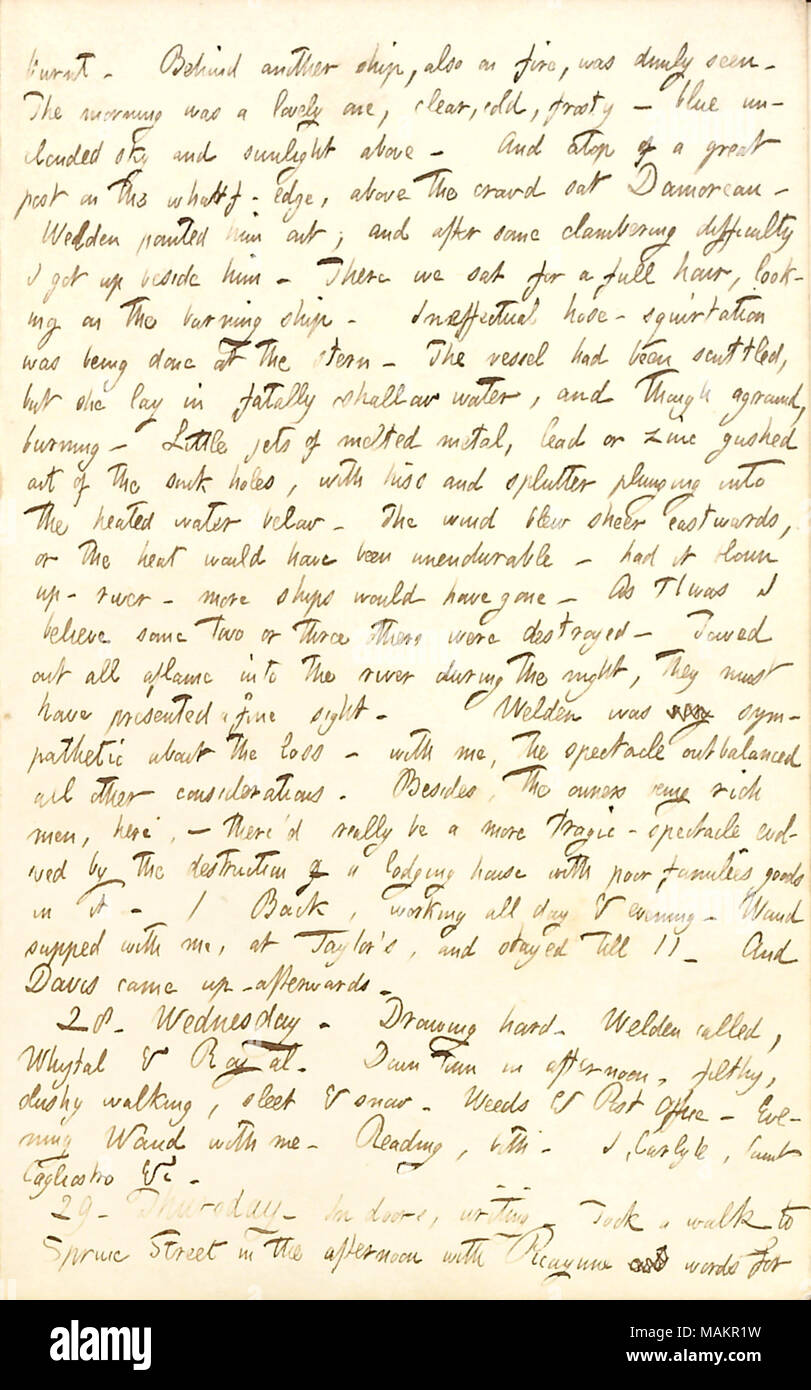 burnt - Behind another ship, also on fire, was dimly seen -
The morning was a lovely one, clear, cold, frosty - blue un-
clouded sky and sunlight above - And atop of a great
post on the wharf-edge, above the crowd sat Damoreau -
Welden pointed him out, and after some clambering difficulty
I got up beside him - There we sat for a full hour, look-
ing on the burning ship - Ineffectual hose-squirtation
was being done at the stern - The vessel had been scuttled,
but she lay in fatally shallow water, and though aground,
burning - Little jets of melted metal, lead or zinc gushed
out of the sunk holes, with hiss and splutter plunging into
the heated water below - The wind blew sheer eastwards,
or the heat would have been unendurable - had it blown
up-river - more ships would have gone - As 'twas I
believe some two or three others were destroyed - Towed
out all aflame into the river during the night, they must
have presented a fine sight - Welden was very sym-
pathetic about the loss - with me, the spectacle outbalanced
all other considerations. Besides, the owners being rich
men, here, - there'd really be a more tragic-spectacle evol-
ved by the destruction of a lodging house with poor families goods
in it - / Back, working all day & evening - Waud
supped with me, at Taylor's, and stayed till 11 - And
Davis came up afterwards -
28 - Wednesday - Drawing hard - Welden called,
Whytal & Rayal. Down town in afternoon, filthy,
slushy walking, sleet & snow - Weeds & Post Office - Eve-
ning Waud with me - Reading, both - I, Carlyle, Count
Cagliostro &c -
29 - Thursday - In doors, writing - Took a walk to
Spruce Street in the afternoon with Picayune words for
alamy
alamy
Image ID: MAKR1W
www.alamy.com